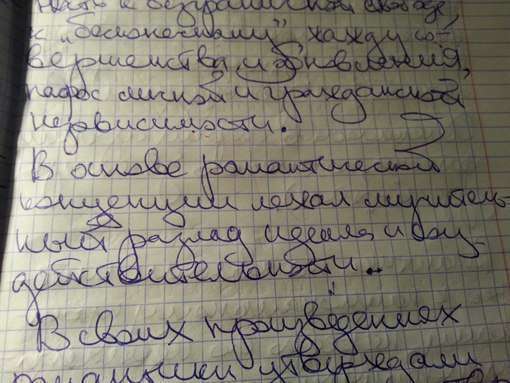 к безграничной свободе,
к „бесконечному", жажду со-
вершенства и обновления,
пафос личной и гражданской
независимости.
В основе романтической
концепции лежал мучитель-
ный разлад идеала и
действительности.
В своих произведениях
романтики утверждали